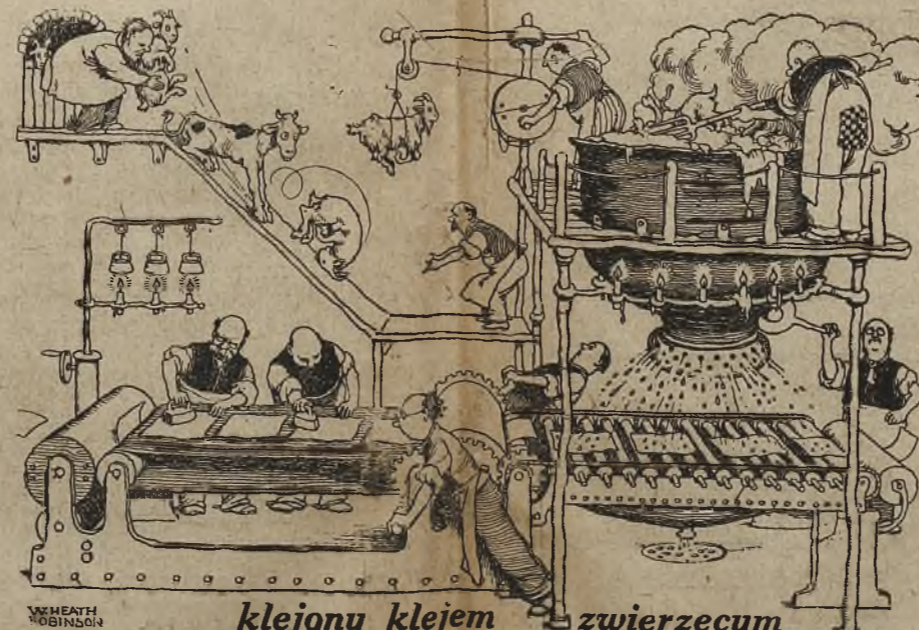 W. HEATH
ROBINSON
klejony klejem zwierzęcym